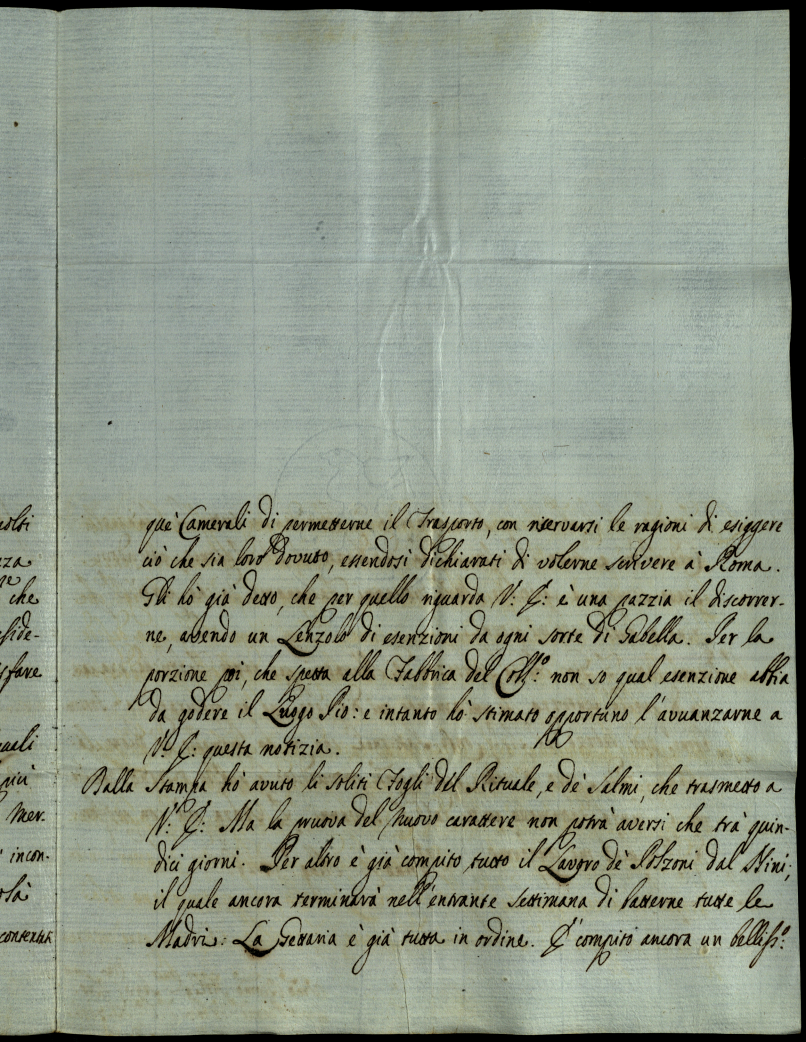 colti
zza
ne
che
eside-
isfare
quali
più
Mer.
i incon-
contentià
que' Camerali di permetterne il Trasporto, con riservarsi le ragioni di esiggere
ciò che sia loro dovuto, essendosi dichiarati di volerne scrivere à Roma.
Gli hò già detto, che per quello riguarda V: E: è una pazzia il discorrer-
ne, avendo un Lenzolo di esenzioni da ogni sorte di Gabella. Per la
porzione poi, che spetta alla Fabbrica del Coll:º non so qual esenzione abbia
da godere il Luogo Pio: e intanto hò stimato opportuno l'avvanzarne a
V: E: questa notizia.
Dalla Stampa hò avuto li soliti Fogli del Rituale, e de' Salmi, che trasmetto a
V: E: Ma la pruova del nuovo carattere non potrà aversi che trà quin-
dici giorni. Per altro è già compito tutto il Lavoro de' Polzoni dal Nini;
il quale ancora terminarà nell'entrante Settimana di batterne tutte le
Madri: La Gettaria è già tutta in ordine. E' compito ancora un bellisº: